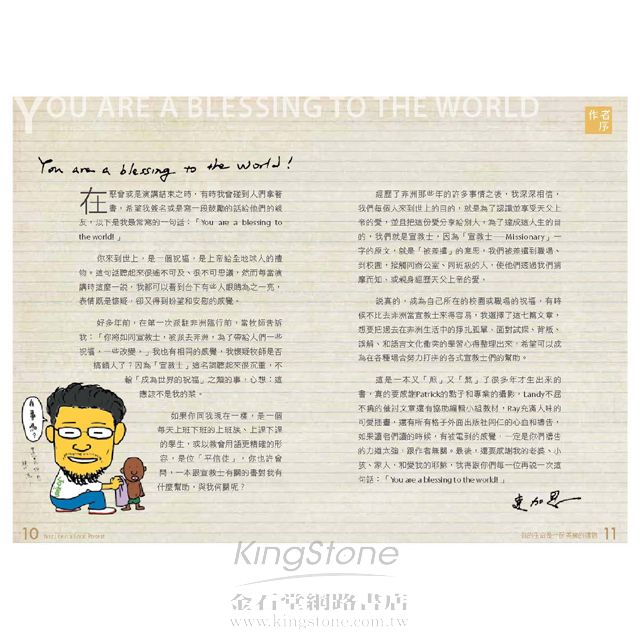 YOU ARE A BLESSING TO THE WORLD
作者
序
You are a blessing to the world!
在聚會或是演講結束之時，有時我會碰到人們拿著
書，希望我簽名或是寫一段鼓勵的話給他們的親
友，以下是我最常寫的一句話：「You are a blessing to
the world!」
你來到世上，是一個祝福，是上帝給全地球人的禮
物。這句話聽起來很遙不可及、很不可思議，然而每當演
講時這麼一說，我都可以看到台下有些人眼睛為之一亮，
表情既是懷疑，卻又得到盼望和安慰的感覺。
好多年前，在第一次派駐非洲臨行前，當牧師告訴
我：「你將如同宣教士，被派去非洲，為了帶給人們一些
祝福，一些改變。」我也有相同的感覺，我懷疑牧師是否
搞錯人了？因為「宣教士」這名詞聽起來很沉重，不
輸「成為世界的祝福」之類的事，心想：這
應該不是我的菜。
如果你同我現在一樣，是一個
每天上班下班的上班族、上課下課
的學生，或以教會用語更精確的形
容，是位「平信徒」，你也許會
問，一本跟宣教士有關的書對我有
什麼幫助，與我何關呢？
有事嗎？
10
經歷了非洲那些年的許多事情之後，我深深相信，
我們每個人來到世上的目的，就是為了認識並享受天父上
帝的愛，並且把這份愛分享給別人。為了達成這人生的目
的，我們就是宣教士，因為「宣教士──Missionary」一
字的原文，就是「被差遣」的意思，我們被差遣到職場、
到校園，接觸同辦公室、同班級的人，使他們透過我們揣
摩而知、或親身經歷天父上帝的愛。
說真的，成為自己所在的校園或職場的祝福，有時
候不比去非洲當宣教士來得容易，我選擇了這七篇文章，
想要把過去在非洲生活中的掙扎孤單、面對試探、背叛、
誤解、和語言文化衝突的學習心得整理出來，希望可以成
為在各種場合努力打拚的各式宣教士們的幫助。
這是一本又「煎」又「熬」了很多年才生出來的
書，真的要感謝Patrick的點子和專業的攝影，Landy不屈
不撓的催討文章還有協助編輯小組教材，Ray充滿人味的
可愛插畫，還有所有格子外面出版社同仁的心血和禱告，
如果讀者們讀的時候，有被電到的感覺，一定是你們禱告
的力道太強，跟作者無關。最後，還要感謝我的老婆、小
孩、家人、和愛我的耶穌，我得跟你們每一位再說一次這
句話：「You are a blessing to the world!」
連加恩
11
KingStone
金石堂網路書店
www.kingstone.com.tw